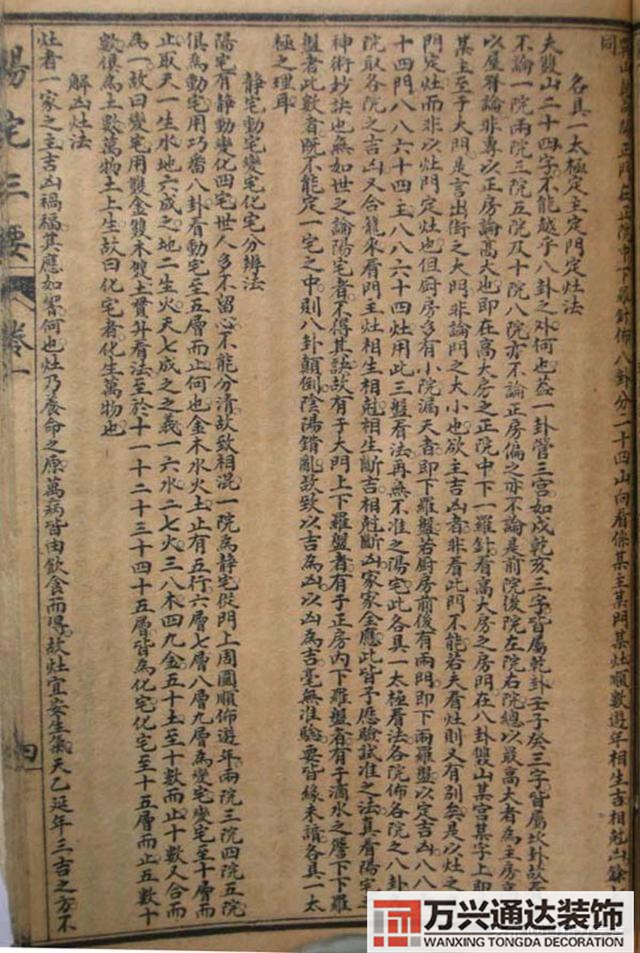 各具一太極定主定門定灶法
夫雙山二十四字不能越乎八卦之外何也葢一卦管三宮如戌乾亥三字皆屬乾卦壬子癸三字皆屬坎卦故
不論一院兩院三院五院及十院八院亦不論正房偏之亦不論是前院後院左院右院總以最高大者為主房
以屋脊論非專以正房論高大也即在高大房之正院中下一羅針看高大房之房門在八卦雙山某宮某字上即
某主至于大門是言出街之大門非論門之大小也欲主吉凶者非看此門不能若夫看灶則又有別矣是以灶之
門定灶而非以灶門定灶也但厨房多有小院漏天者即下羅盤若厨房前後有兩門即下兩羅盤以定吉凶八八
十四門八八六十四主八八六十四灶用此三盤看法再無不准之陽宅此各具一太極看法各院佈各院之八卦
院取各院之吉凶又合籠來看門主灶相生相尅相生斷吉相尅斷凶家家全應此皆予應驗試准之法真看陽宅
神術妙訣也無如世之論陽宅者不得其訣故有于大門上下羅盤者有于正房内下羅盤者有于滴水之簷下下羅
盤者此數者既不能定一宅之中則八卦顛倒陰陽錯亂故致以吉為凶以凶為吉毫無准驗要皆緣未讀各具一太
極之理耳
靜宅動宅變宅化宅分辨法
陽宅有靜動變化四宅世人多不留心不能分清故致相混一院為靜宅從門上周圖順佈遊年兩院三院四院五院
俱為動宅用巧番八卦看動宅至五層而止何也金木水火土止有五行六層七層八層九層為變宅變宅至十層而
止取天一生水地六成之地二生火天七成之之義一六水二七火三八木四九金五十土至十數而止十數又合而
為一故曰變宅用雙金雙木雙土貫井看法至於十一十二十三十四十五層皆為化宅化宅至十五層而止五數十
數俱為土數萬物土上生故曰化宅者化生萬物也
解凶灶法
灶者一家之主吉凶禍福其應如響何也灶乃養命之原萬病皆由飲食而得故灶宜安生氣天乙延年三吉之方不
陽宅三要
卷一
四
万兴通达装饰
WANXING TONGDA DECORATION